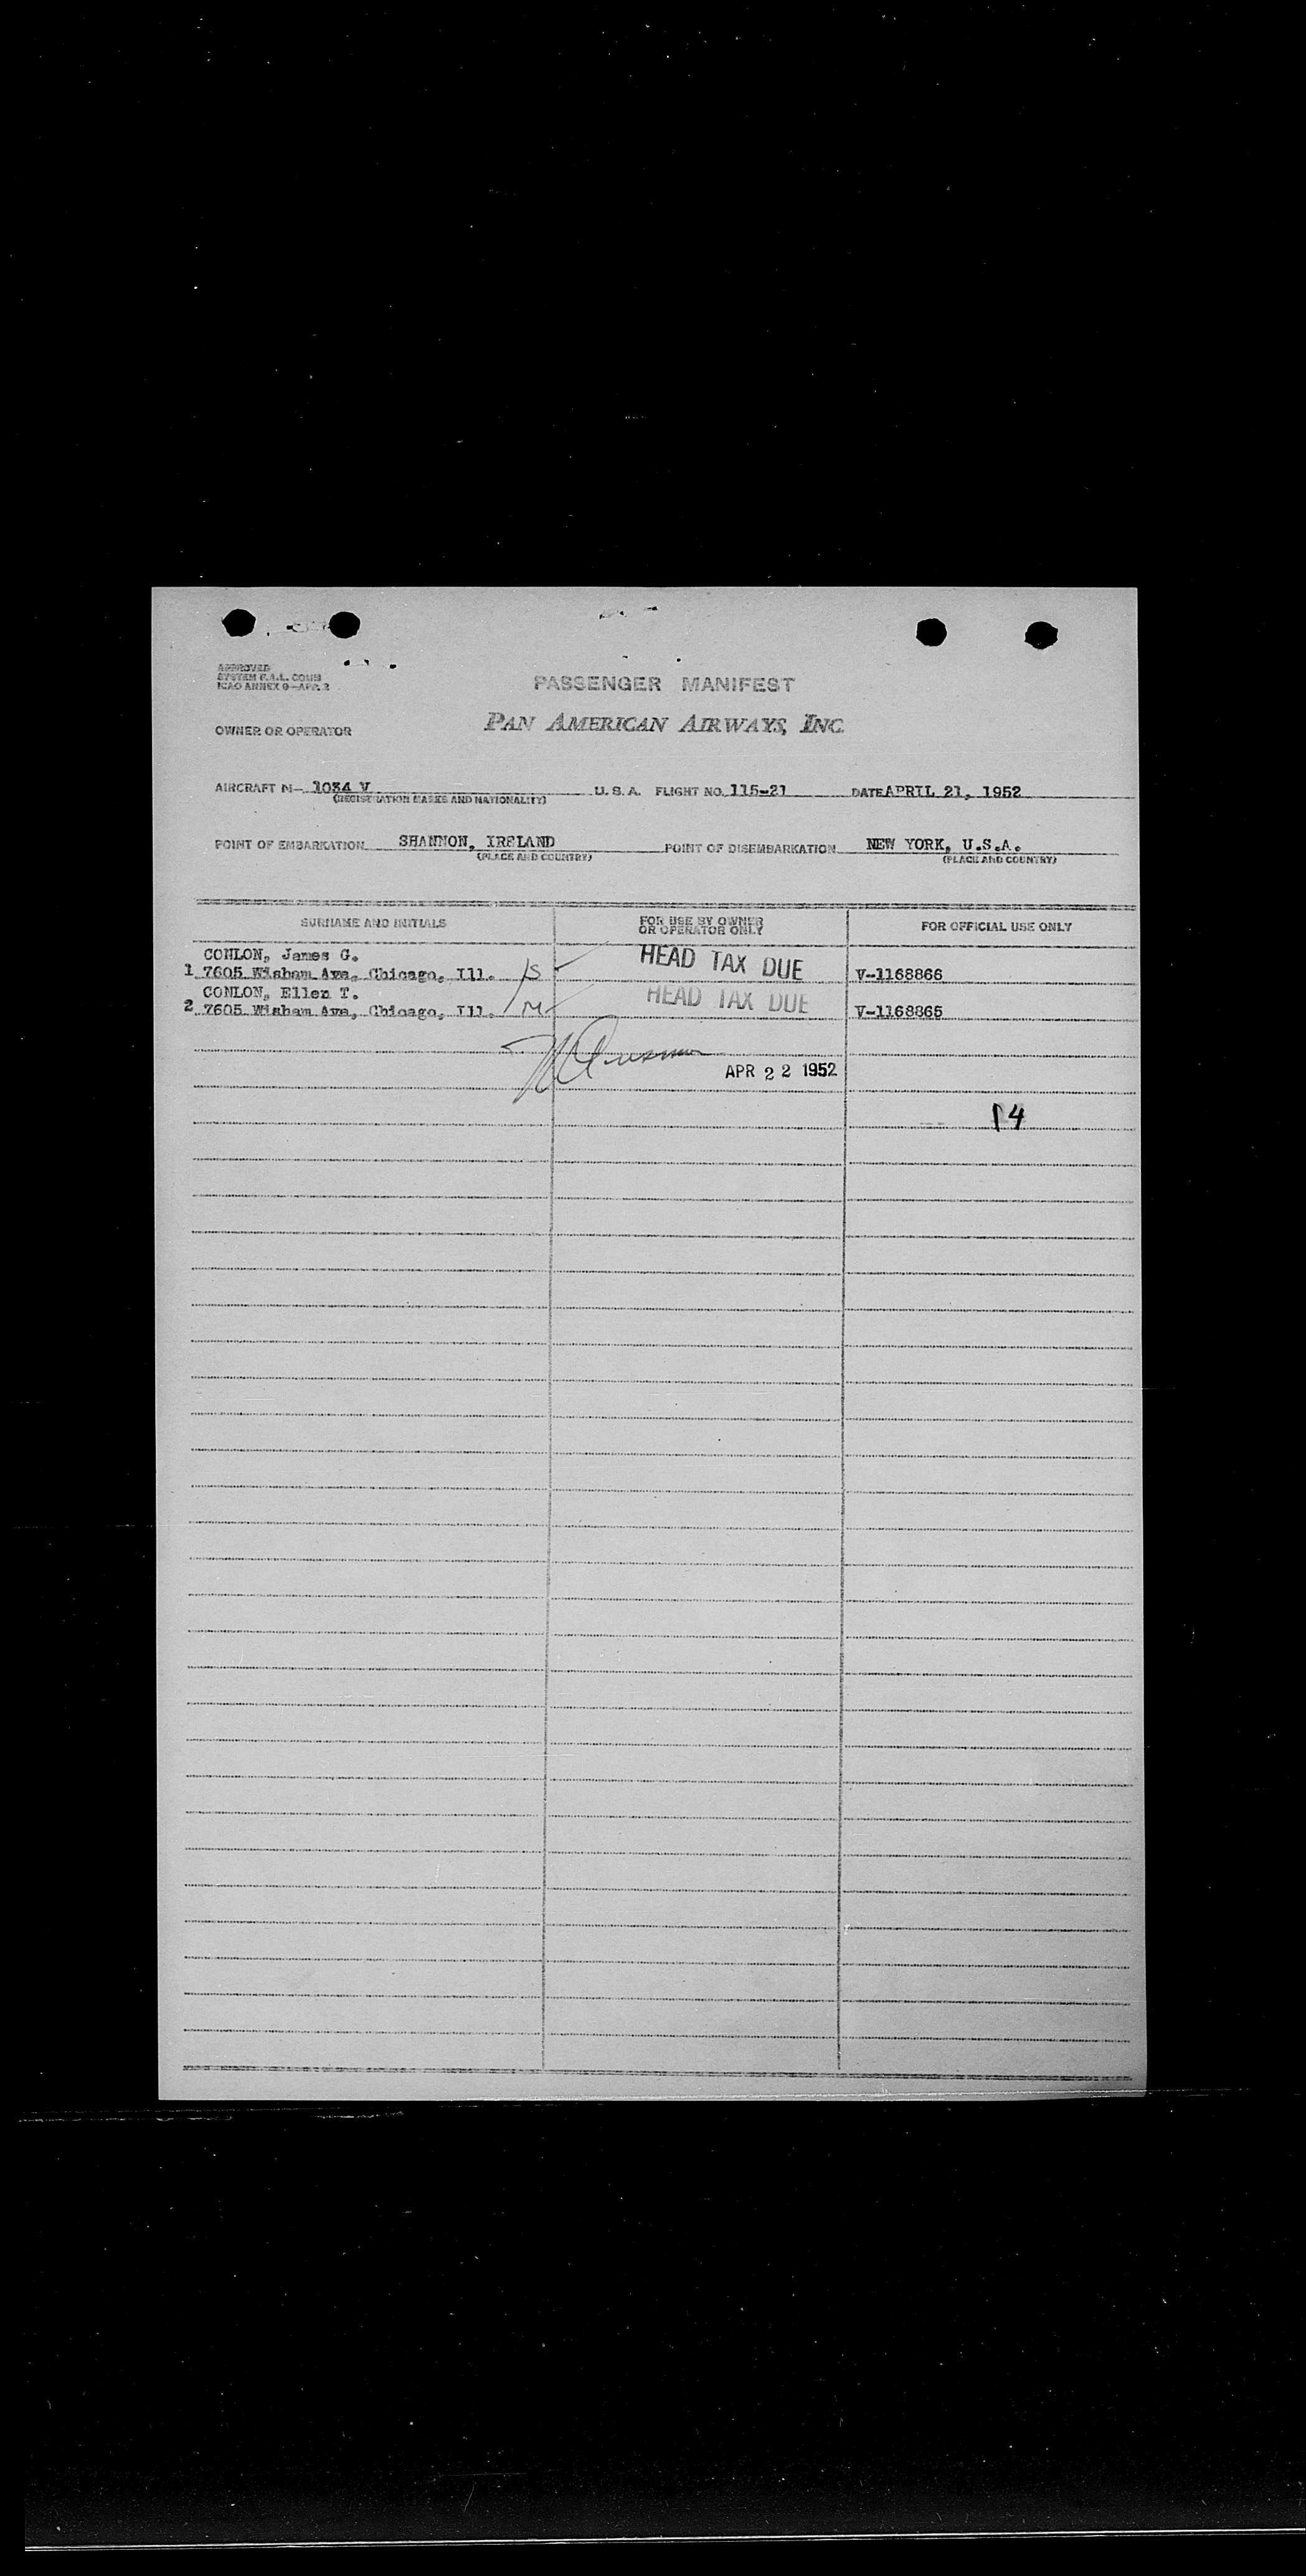 APPROVED
SYSTEM F.A.L. COMM
ICAO ANNEX 9—APP. 2
PASSENGER MANIFEST
PAN AMERICAN AIRWAYS, INC.
OWNER OR OPERATOR
AIRCRAFT N- 1034 V U.S.A. FLIGHT NO. 115-21 DATE APRIL 21, 1952
(REGISTRATION MARKS AND NATIONALITY)
POINT OF EMBARKATION SHANNON, IRELAND POINT OF DISEMBARKATION NEW YORK, U.S.A.
(PLACE AND COUNTRY) (PLACE AND COUNTRY)
SURNAME AND INITIALS FOR USE BY OWNER OR OPERATOR ONLY FOR OFFICIAL USE ONLY
CONLON, James G.
1 7605 Ave, Chicago, Ill. /S HEAD TAX DUE V-1168866
CONLON, Ellen T.
2 7605 Ave, Chicago, Ill. /M HEAD TAX DUE V-1168865
APR 22 1952
14